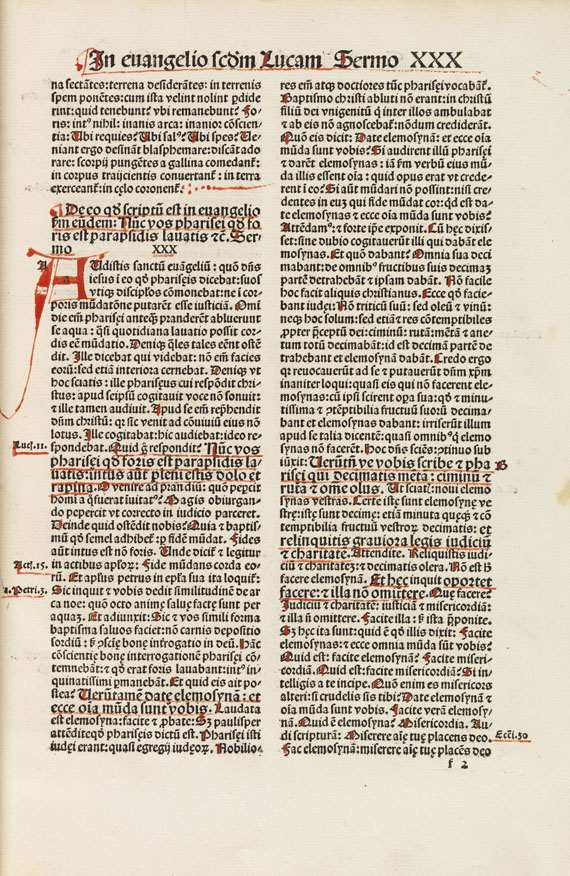 In euangelio scd̄m Lucam Sermo XXX
na sectātes: terrena desiderātes: in terrenis
spem ponētes: cum ista velint nolint p̱dide
rint: quid tenebunt? vbi remanebunt? Fo-
ris: intꝰ nihil: inanis arca: inanior cōscien-
tia: Ubi requies? Ubi salꝰ? Ubi spes? Ue-
niant ergo desināt blasphemare: discāt ado
rare: scorpij pungētes a gallina comedant̄:
in corpus traijcientis conuertant̄: in terra
exerceant̄: in celo coronent̄.
De eo qd̄ scriptū est in euangelio
fm̄ eundem: Nūc vos pharisei qd̄ fo
ris est parapsidis lauatis ⁊c̄. Ser-
mo XXX
A
AUdistis sanctū euāgeliū: quō dn̄s
iesus ī eo qd̄ phariseis dicebat: suos
vtiqꝫ discip̄los cōmonebat: ne ī cor-
poris mūdatōne putarēt esse iusticiā. Om̄i
die em̄ pharisei anteqꝫ pranderēt abluerunt
se aqua: q̄si quotidiana lauatio possit cor-
dis eē mūdatio. Deniqꝫ q̄les tales eēnt ostē
dit. Ille dicebat qui videbat: nō em̄ facies
eorū: sed etiā interiora cernebat. Deniqꝫ vt
hoc sciatis: ille phariseus cui respōdit chri-
stus: apud seip̄sū cogitauit voce nō sonuit:
⁊ ille tamen audiuit. Apud se em̄ rep̱hendit
dn̄m christū: qꝛ sic venit ad cōuiuiū eius nō
lotus. Ille cogitabat: hic audiebat: ideo re-
Luc̄. 11.
spondebat. Quid g̊ respondit? Nūc vos
pharisei qd̄ foris est parapsidis la
uatis: intus aūt pleni estis dolo et
rapina. O venire ad prandiū: quō pepcit
homi a quo fuerat inuitatꝰ? Magis obiurgan-
do pepercit vt correcto in iudicio parceret.
Deinde quid ostēdit nobis? Quia ⁊ baptis-
mꝰ qd̄ semel adhibet̄: p̱ fidē mūdat. Fides
aūt intus est nō foris. Unde dicit̄ ⁊ legitur
Act̄. 15.
in actibus apl̄oꝝ: Fide mūdans corda eo-
rū. Et apl̄us petrus in ep̄la sua ita loquit̄:
1. Petri. 3.
Sic inquit ⁊ vobis dedit similitudinē de ar
ca noe: quō octo anime salue facte sunt per
aquaꝫ. Et adiunxit: Sic ⁊ vos simili forma
baptisma saluos faciet: nō carnis depositio
sordiū: sꝫ ꝯscie bone īnterrogatio in deū. Hāc
cōscientie bone interrogationē pharisei cō-
temnebāt: ⁊ qd̄ erat foris lauabant: intꝰ in-
quinatissimi pmanebāt. Et quid eis ait po-
stea? Uerūtamē date elemosynā: et
ecce oīa mūda sunt vobis. Laudata
est elemosyna: facite ⁊ ꝓbate: Sꝫ paulisper
attēdite qd̄ phariseis dictū est. Pharisei isti
iudei erant: quasi egregij iudeoꝝ. Nobilio-
res em̄ atqꝫ doctiores tūc pharisei vocabāt̄.
Baptismo christi abluti nō erant: in christū
filiū dei vnigenitū qui inter illos ambulabat
⁊ ab eis nō agnoscebat̄: nōdum crediderāt.
Quō eis dicit: Date elemosynā: et ecce oīa
mūda sunt vobis? Si audirent illū pharisei
⁊ darēt elemosynas: iā fm̄ verbū eius mū-
da illis essent oīa: quid opus erat vt crede-
rent ī eo? Si aūt mūdari nō possint: nisi cre
dentes in euꝫ qui fide mūdat cor: qd̄ est da-
te elemosynas ⁊ ecce oīa mūda sunt vobis?
Attēdamꝰ: ⁊ forte ip̄e exponit. Cū hec dixis-
set: sine dubio cogitauerūt illi qui dabāt ele
mosynas. Et quō dabant? Omnia sua deci
mabant: de omnibꝰ fructibus suis decimaꝫ
partē detrahebāt ⁊ ipsam dabāt. Nō facile
hoc faciat aliquis christianus. Ecce qd̄ facie-
bant iudei: Nō triticū suū: sed oleū ⁊ vinū:
neqꝫ hoc solum: sed etiā ⁊ res cōtemptibiles
ꝓpter p̄ceptū dei: ciminū: rutā: mētā ⁊ ane-
tum totū decimabāt: id est decimā partē de-
trahebant et elemosynā dabāt. Credo ergo
qꝛ reuocauerūt ad se ⁊ putauerūt dn̄m xp̄m
inaniter loqui: quasi eis qui nō facerent ele-
mosynas: cū ipsi scirent oꝑa sua: qd̄ ⁊ minu-
tissima ⁊ ꝯtēptibilia fructuū suorū decima-
bant et elemosynas dabant: irriserūt illum
apud se talia dicentē: quasi omnibꝰ qui elemo
synas nō facerēt. Hoc dn̄s sciēs: ꝯtinuo sub
iūxit: Uerūtn̄ ve vobis scribe ⁊ pha
B
risei qui decimatis mētā: ciminū ⁊
rutā ⁊ ōme olus. Ut sciatis: noui elemo
synas vestras. Certe iste sunt elemosyne ve
stre: iste sunt decime: etiā minuta queqꝫ ⁊ cō
temptibilia fructuū vestroꝝ decimatis: et
relinquitis grauiora legis iudiciū
⁊ charitatē. Attendite. Reliquistis iudi-
ciū ⁊ charitatē: ⁊ decimatis olera. Nō est h̄
facere elemosynā. Et hec inquit oportet
facere: ⁊ illa nō omittere. Que facere?
Judiciū ⁊ charitatē: iusticiā ⁊ misericordiā:
⁊ illa nō omittere. Facite illa: sꝫ ista p̄ponite.
Sꝫ hec ita sunt: quid ē qd̄ illis dixit: Facite
elemosynas: ⁊ ecce omnia mūda sūt vobis?
Quid est: facite elemosynā? Facite miseri-
cordiā. Quid est: facite misericordiā? Si in-
telligis a te incipe. Quō enim es misericors
alteri: si crudelis sis tibi? Date elemosynā ⁊
oīa mūda sunt vobis. Facite verā elemosy-
nā. Quid ē elemosyna? Misericordia. Au-
di scripturā: Miserere aīe tue placens deo.
Ecc̄i. 30
Fac elemosynā: miserere aīe tue placēs deo
f 2